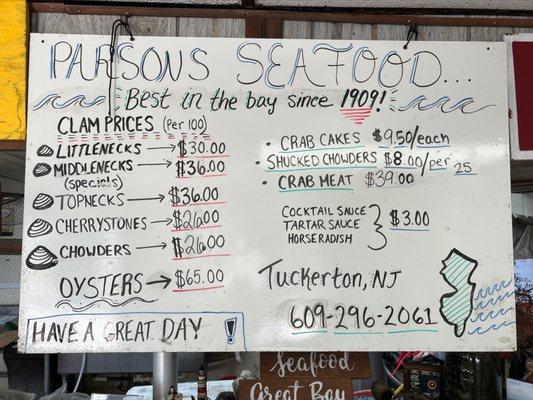 PARSONS SEAFOOD...
Best in the bay since 1909!
CLAM PRICES (Per 100)
LITTLENECKS → $30.00
MIDDLENECKS → $36.00
(specials)
TOPNECKS → $36.00
CHERRYSTONES → $26.00
CHOWDERS → $26.00
OYSTERS → $65.00
HAVE A GREAT DAY !
• CRAB CAKES $9.50/each
• SHUCKED CHOWDERS $8.00/per 25
• CRAB MEAT $39.00
COCKTAIL SAUCE
TARTAR SAUCE } $3.00
HORSERADISH
TUCKERTON, NJ
609-296-2061
Seafood
Great Bay